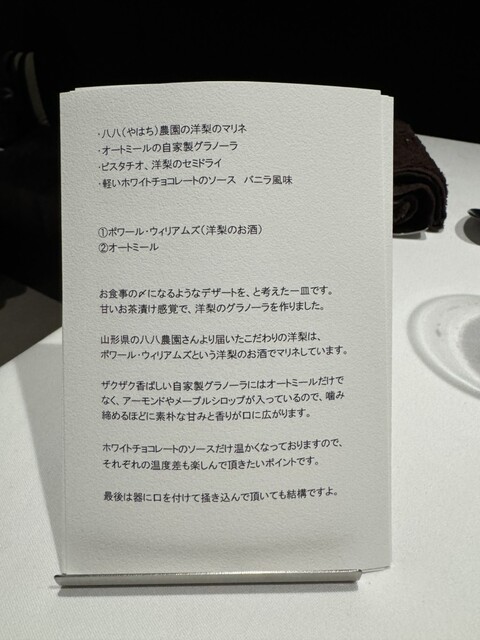 ・八八(やはち)農園の洋梨のマリネ
・オートミールの自家製グラノーラ
・ピスタチオ、洋梨のセミドライ
・軽いホワイトチョコレートのソース　バニラ風味
①ポワール・ウィリアムズ(洋梨のお酒)
②オートミール
お食事の〆になるようなデザートを、と考えた一皿です。
甘いお茶漬け感覚で、洋梨のグラノーラを作りました。
山形県の八八農園さんより届いたこだわりの洋梨は、
ポワール・ウィリアムズという洋梨のお酒でマリネしています。
ザクザク香ばしい自家製グラノーラにはオートミールだけで
なく、アーモンドやメープルシロップが入っているので、噛み
締めるほどに素朴な甘みと香りが口に広がります。
ホワイトチョコレートのソースだけ温かくなっておりますので、
それぞれの温度差も楽しんで頂きたいポイントです。
最後は器に口を付けて掻き込んで頂いても結構ですよ。